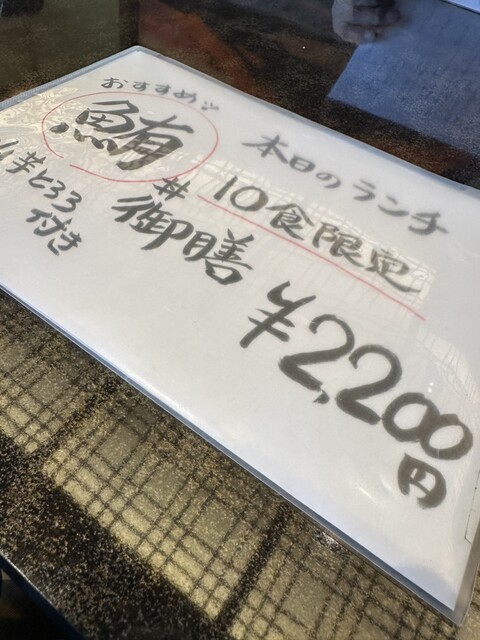 本日のランチ
10食限定
おすすめ!!
鮪丼御膳
山芋とろろ
付き
¥2,200円